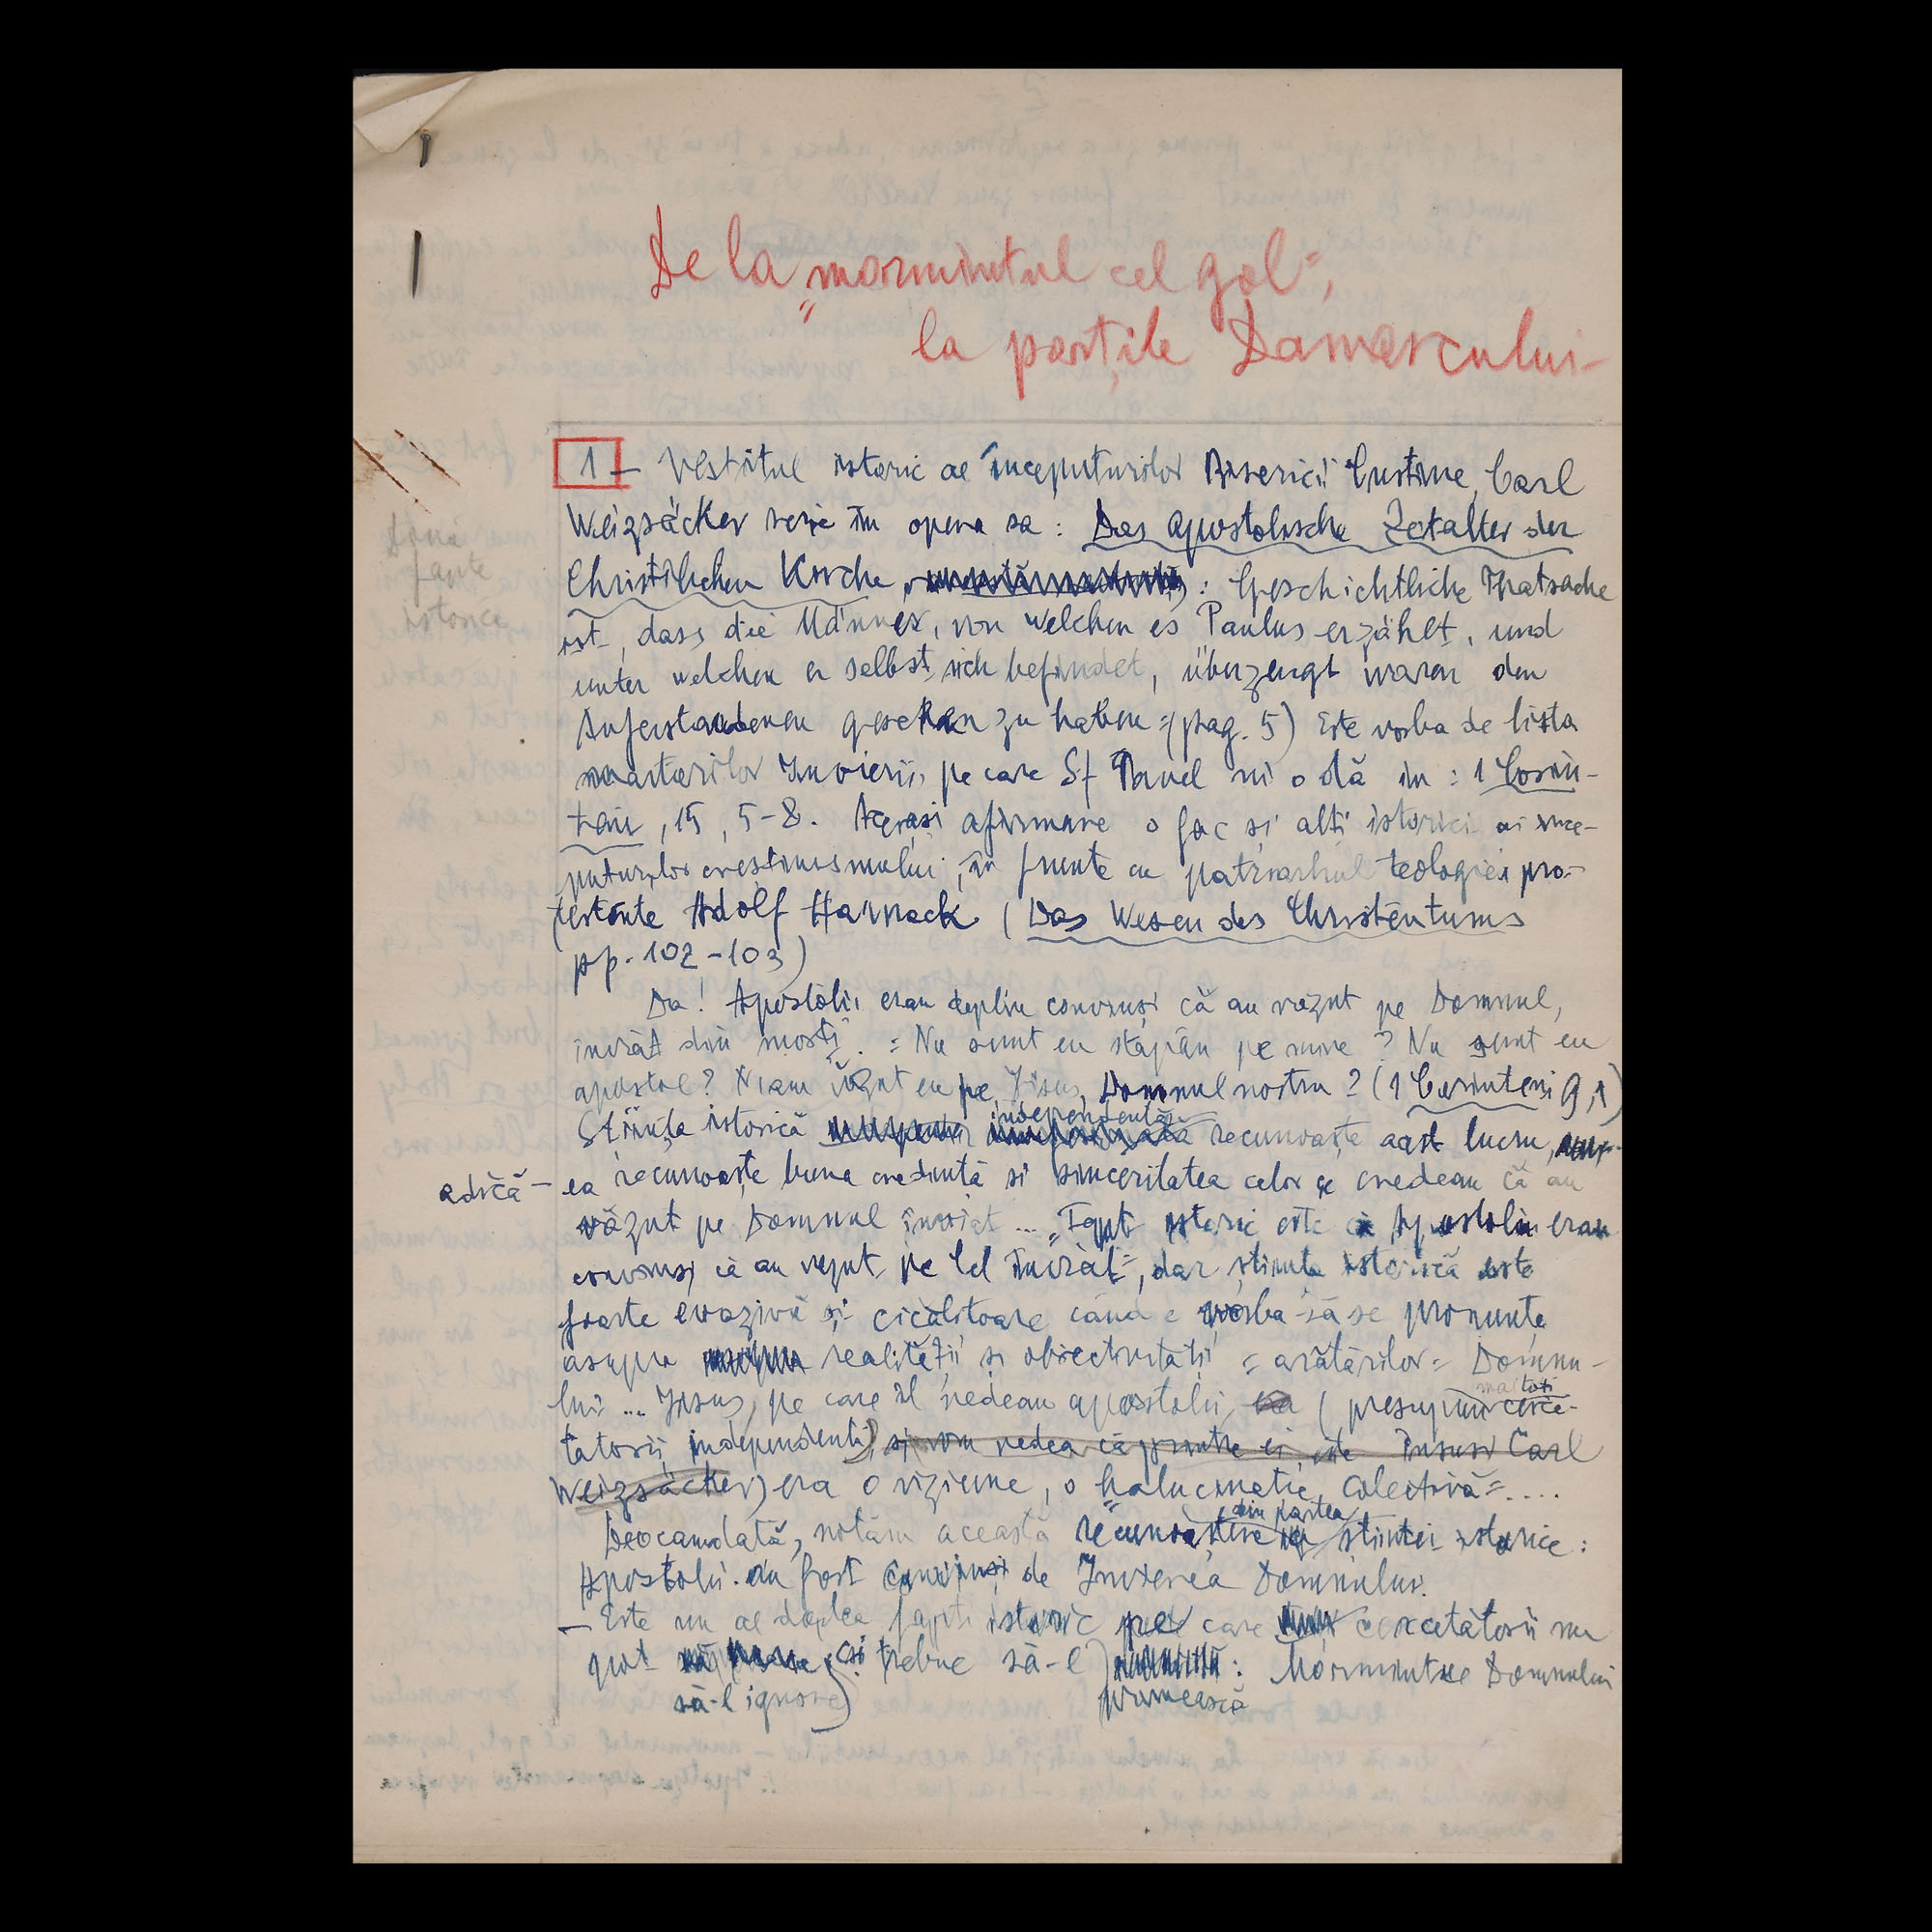 De la „mormîntul cel gol",
la porțile Damascului-
1 - Vestitul istoric al începuturilor Bisericii Creștine, Carl
Weizsäcker scrie în opera sa: Das apostolische Zeitalter der
Christlichen Kirche, : Geschichtliche Thatsache
ist, dass die Männer, von welchen es Paulus erzählt, und
unter welchen er selbst sich befindet, überzeugt waren den
Auferstandenen gesehen zu haben" (pag. 5) Este vorba de lista
martorilor Învierii, pe care Sf Pavel ni o dă în: 1 Corin-
teni, 15, 5-8. Aceiași afirmare o fac și alți istorici ai înce-
puturilor creștinismului, în frunte cu patriarhul teologiei pro-
testante Adolf Harnack (Das Wesen des Christentums
pp. 102-103)
Da! Apostolii erau deplin convinși că au văzut pe Domnul,
înviat din morți. „Nu sunt eu stăpân pe mine? Nu sunt eu
apostol? N'am văzut eu pe Iisus, Domnul nostru? (1 Corinteni 9,1)
independentă
Știința istorică recunoaște acest lucru,
adică - ea recunoaște buna credință și sinceritatea celor ce credeau că au
văzut pe Domnul înviat ... „Fapt istoric este că Apostolii erau
convinși că au văzut pe Cel înviat", dar știința istorică este
foarte evazivă și cicălitoare când e vorba să se pronunțe
asupra realității și obiectivității „arătărilor" Domnu-
lui ... Iisus, pe care îl vedeau apostolii, (presupun cerce-
mai toți
tătorii independenți), și vom vedea că printre ei este însuși Carl
Weizsäcker) era o viziune, o „halucinație colectivă"....
din partea
Deocamdată, notăm această recunoaștere științei istorice:
Apostolii au fost convinși de Învierea Domnului.
- Este un al doilea fapt istoric pe care cercetătorii nu
pot și trebue să-l : Mormîntul Domnului
să-l ignore) primească
două
fapte
istorice